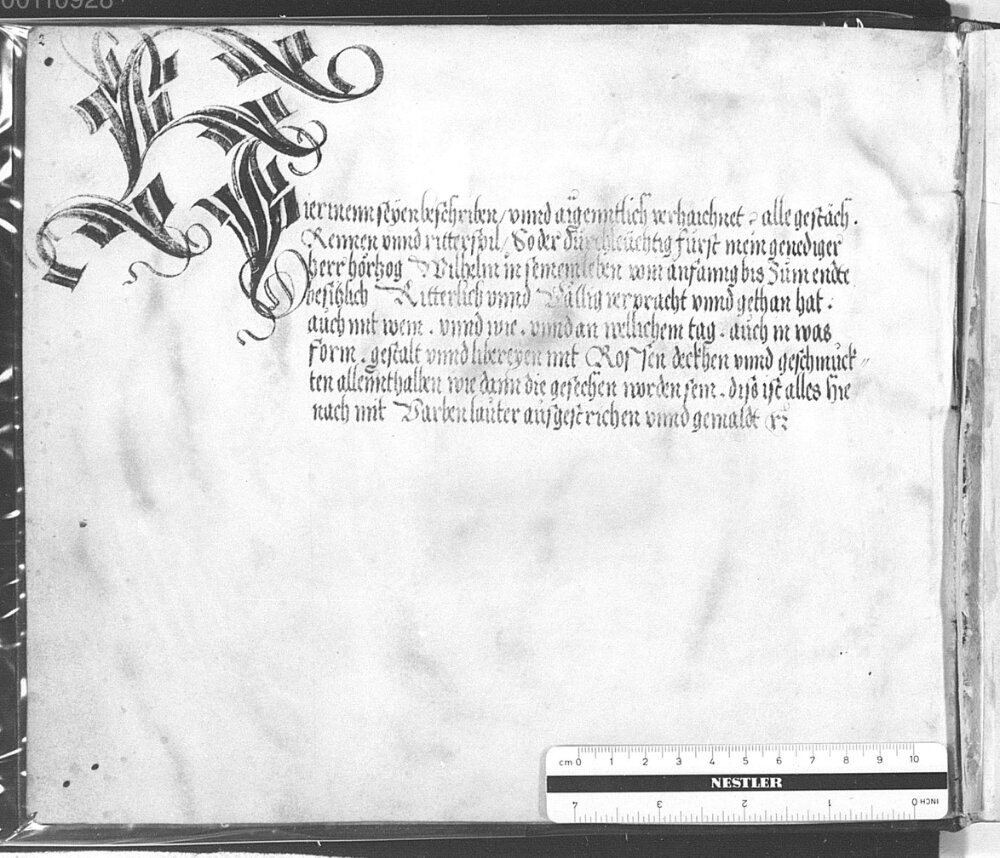 00110928
2
Hierinnen seyen beschriben / vnnd aigenntlich verzaichnet alle gestäch .
Rennen vnnd ritterspil / So der Durchleüchtig fürst mein genediger
herr hörtzog Wilhelm in seinem leben vom anfanng bis zum endte
besitzlich Ritterlich vnnd Vällig verpracht vnnd gethan hat .
auch mit wem . vnnd wie . vnnd an wellichem tag . auch in was
form . gestalt vnnd libereyen mit Rossen deckhen vnnd geschmuck =
ten allennthalben wie dann die gesechen worden sein . dis ist alles hie
nach mit Varben lauter ausgestrichen vnnd gemaldt
cm 0 1 2 3 4 5 6 7 8 9 10
NESTLER
4 3 2 1 0 INCH